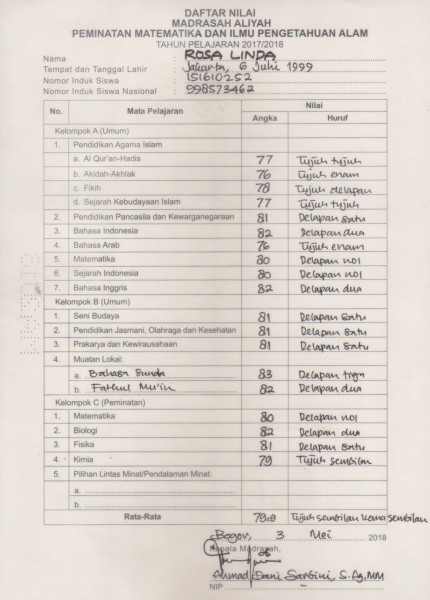 DAFTAR NILAI
MADRASAH ALIYAH
PEMINATAN MATEMATIKA DAN ILMU PENGETAHUAN ALAM
TAHUN PELAJARAN 2017/2018
Nama : ROSA LINDA
Tempat dan Tanggal Lahir : Jakarta, 6 Juli 1999
Nomor Induk Siswa : 151610252
Nomor Induk Siswa Nasional : 998573462
No. Mata Pelajaran Nilai
Angka Huruf
Kelompok A (Umum)
1. Pendidikan Agama Islam
a. Al Qur'an-Hadis 77 Tujuh tujuh
b. Akidah-Akhlak 76 Tujuh enam
c. Fikih 78 Tujuh delapan
d. Sejarah Kebudayaan Islam 77 Tujuh tujuh
2. Pendidikan Pancasila dan Kewarganegaraan 81 Delapan satu
3. Bahasa Indonesia 82 Delapan dua
4. Bahasa Arab 76 Tujuh enam
5. Matematika 80 Delapan nol
6. Sejarah Indonesia 80 Delapan nol
7. Bahasa Inggris 82 Delapan dua
Kelompok B (Umum)
1. Seni Budaya 81 Delapan satu
2. Pendidikan Jasmani, Olahraga dan Kesehatan 81 Delapan satu
3. Prakarya dan Kewirausahaan 81 Delapan satu
4. Muatan Lokal:
a. Bahasa Sunda 83 Delapan tiga
b. Fathul Mu'in 82 Delapan dua
Kelompok C (Peminatan)
1. Matematika 80 Delapan nol
2. Biologi 82 Delapan dua
3. Fisika 81 Delapan satu
4. Kimia 79 Tujuh sembilan
5. Pilihan Lintas Minat/Pendalaman Minat:
a.
b.
Rata-Rata 79.9 Tujuh sembilan koma sembilan
Bogor, 3 Mei 2018
Kepala Madrasah,
Ahmad Sartini, S.Ag,MM
NIP